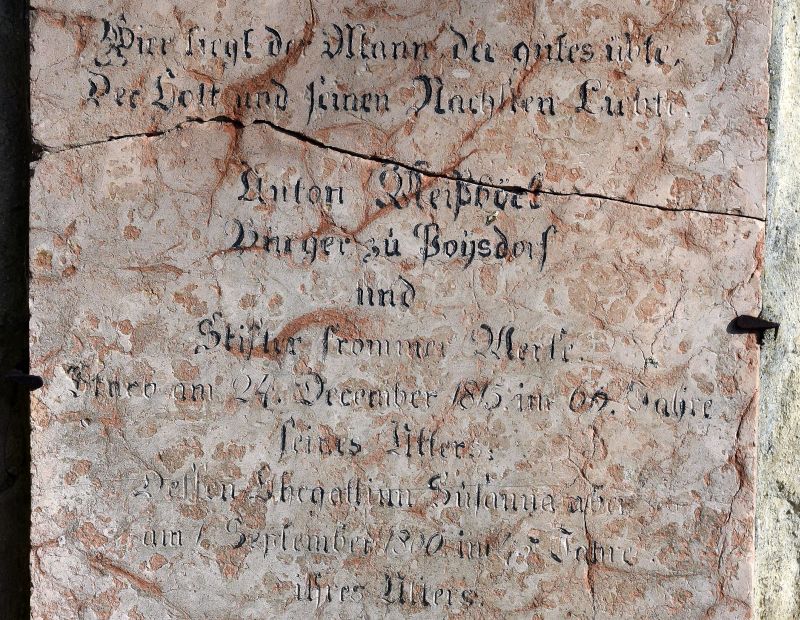 Hier liegt der Mann der gutes übte,
Der Gott und seinen Nächsten Liebte.
Anton
Bürger zu Poysdorf
und
Stifter frommer Werke.
Starb am 24. December 1815. im Jahre
seines Alters.
Dessen Ehegattinn Susanna aber
am September im Jahre
ihres Alters.